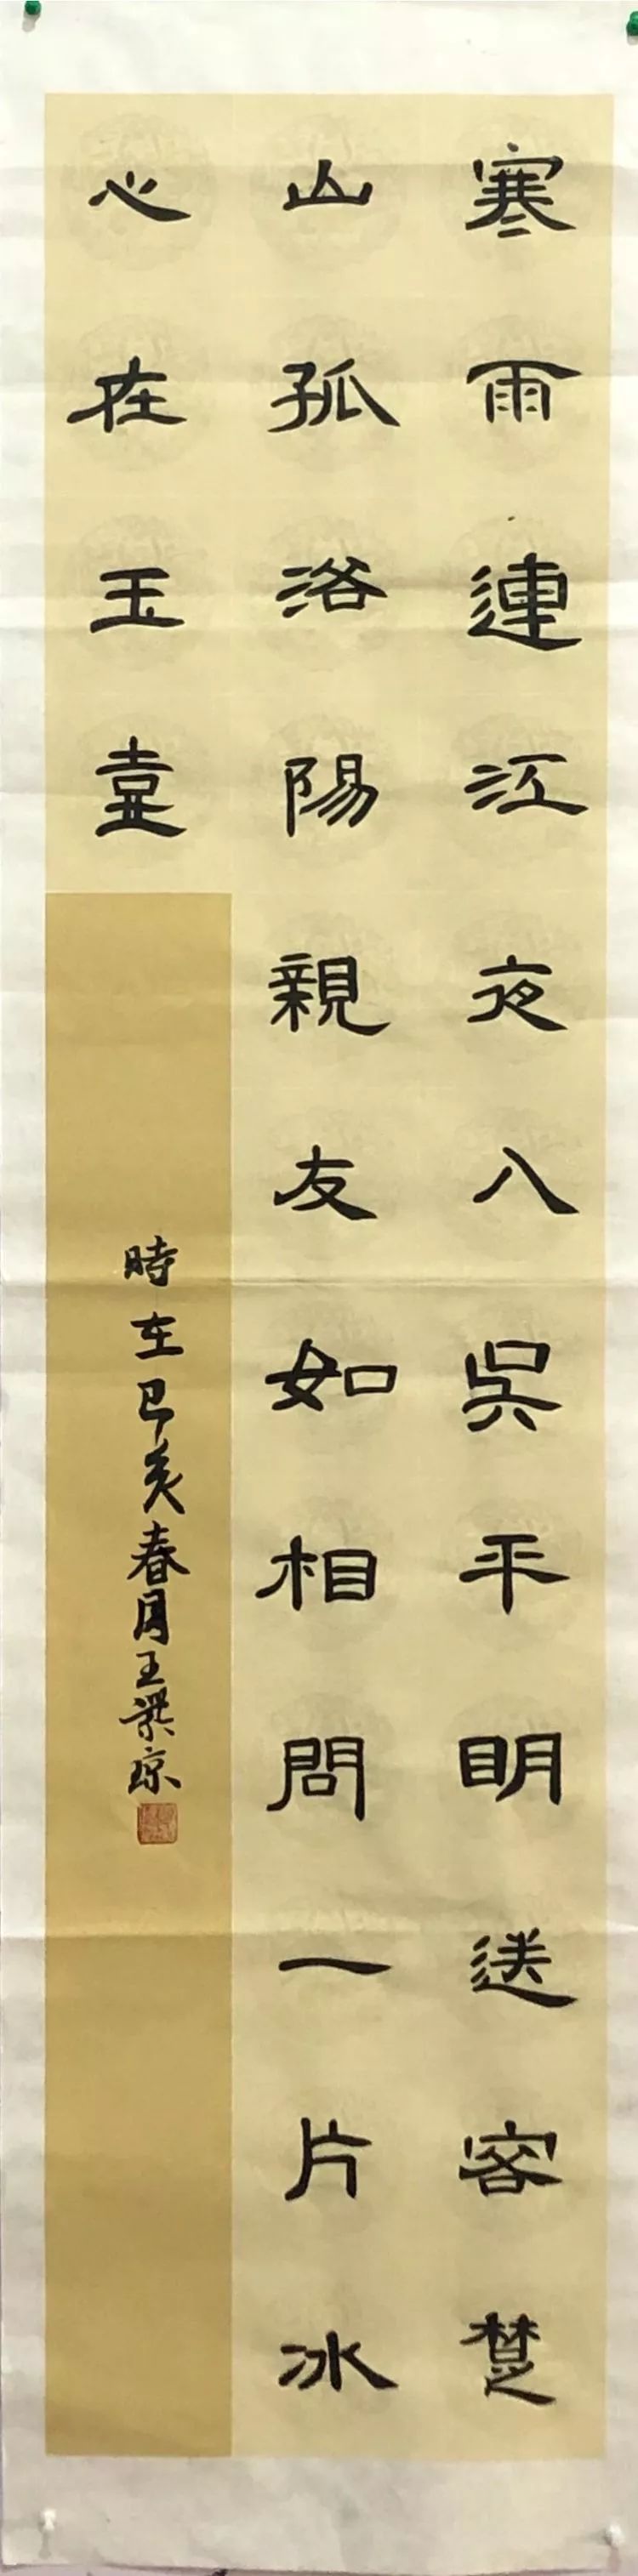 寒雨連江夜八吳平明送客楚
山孤洛陽親友如相問一片冰
心在玉壺
時在己亥春月王琼